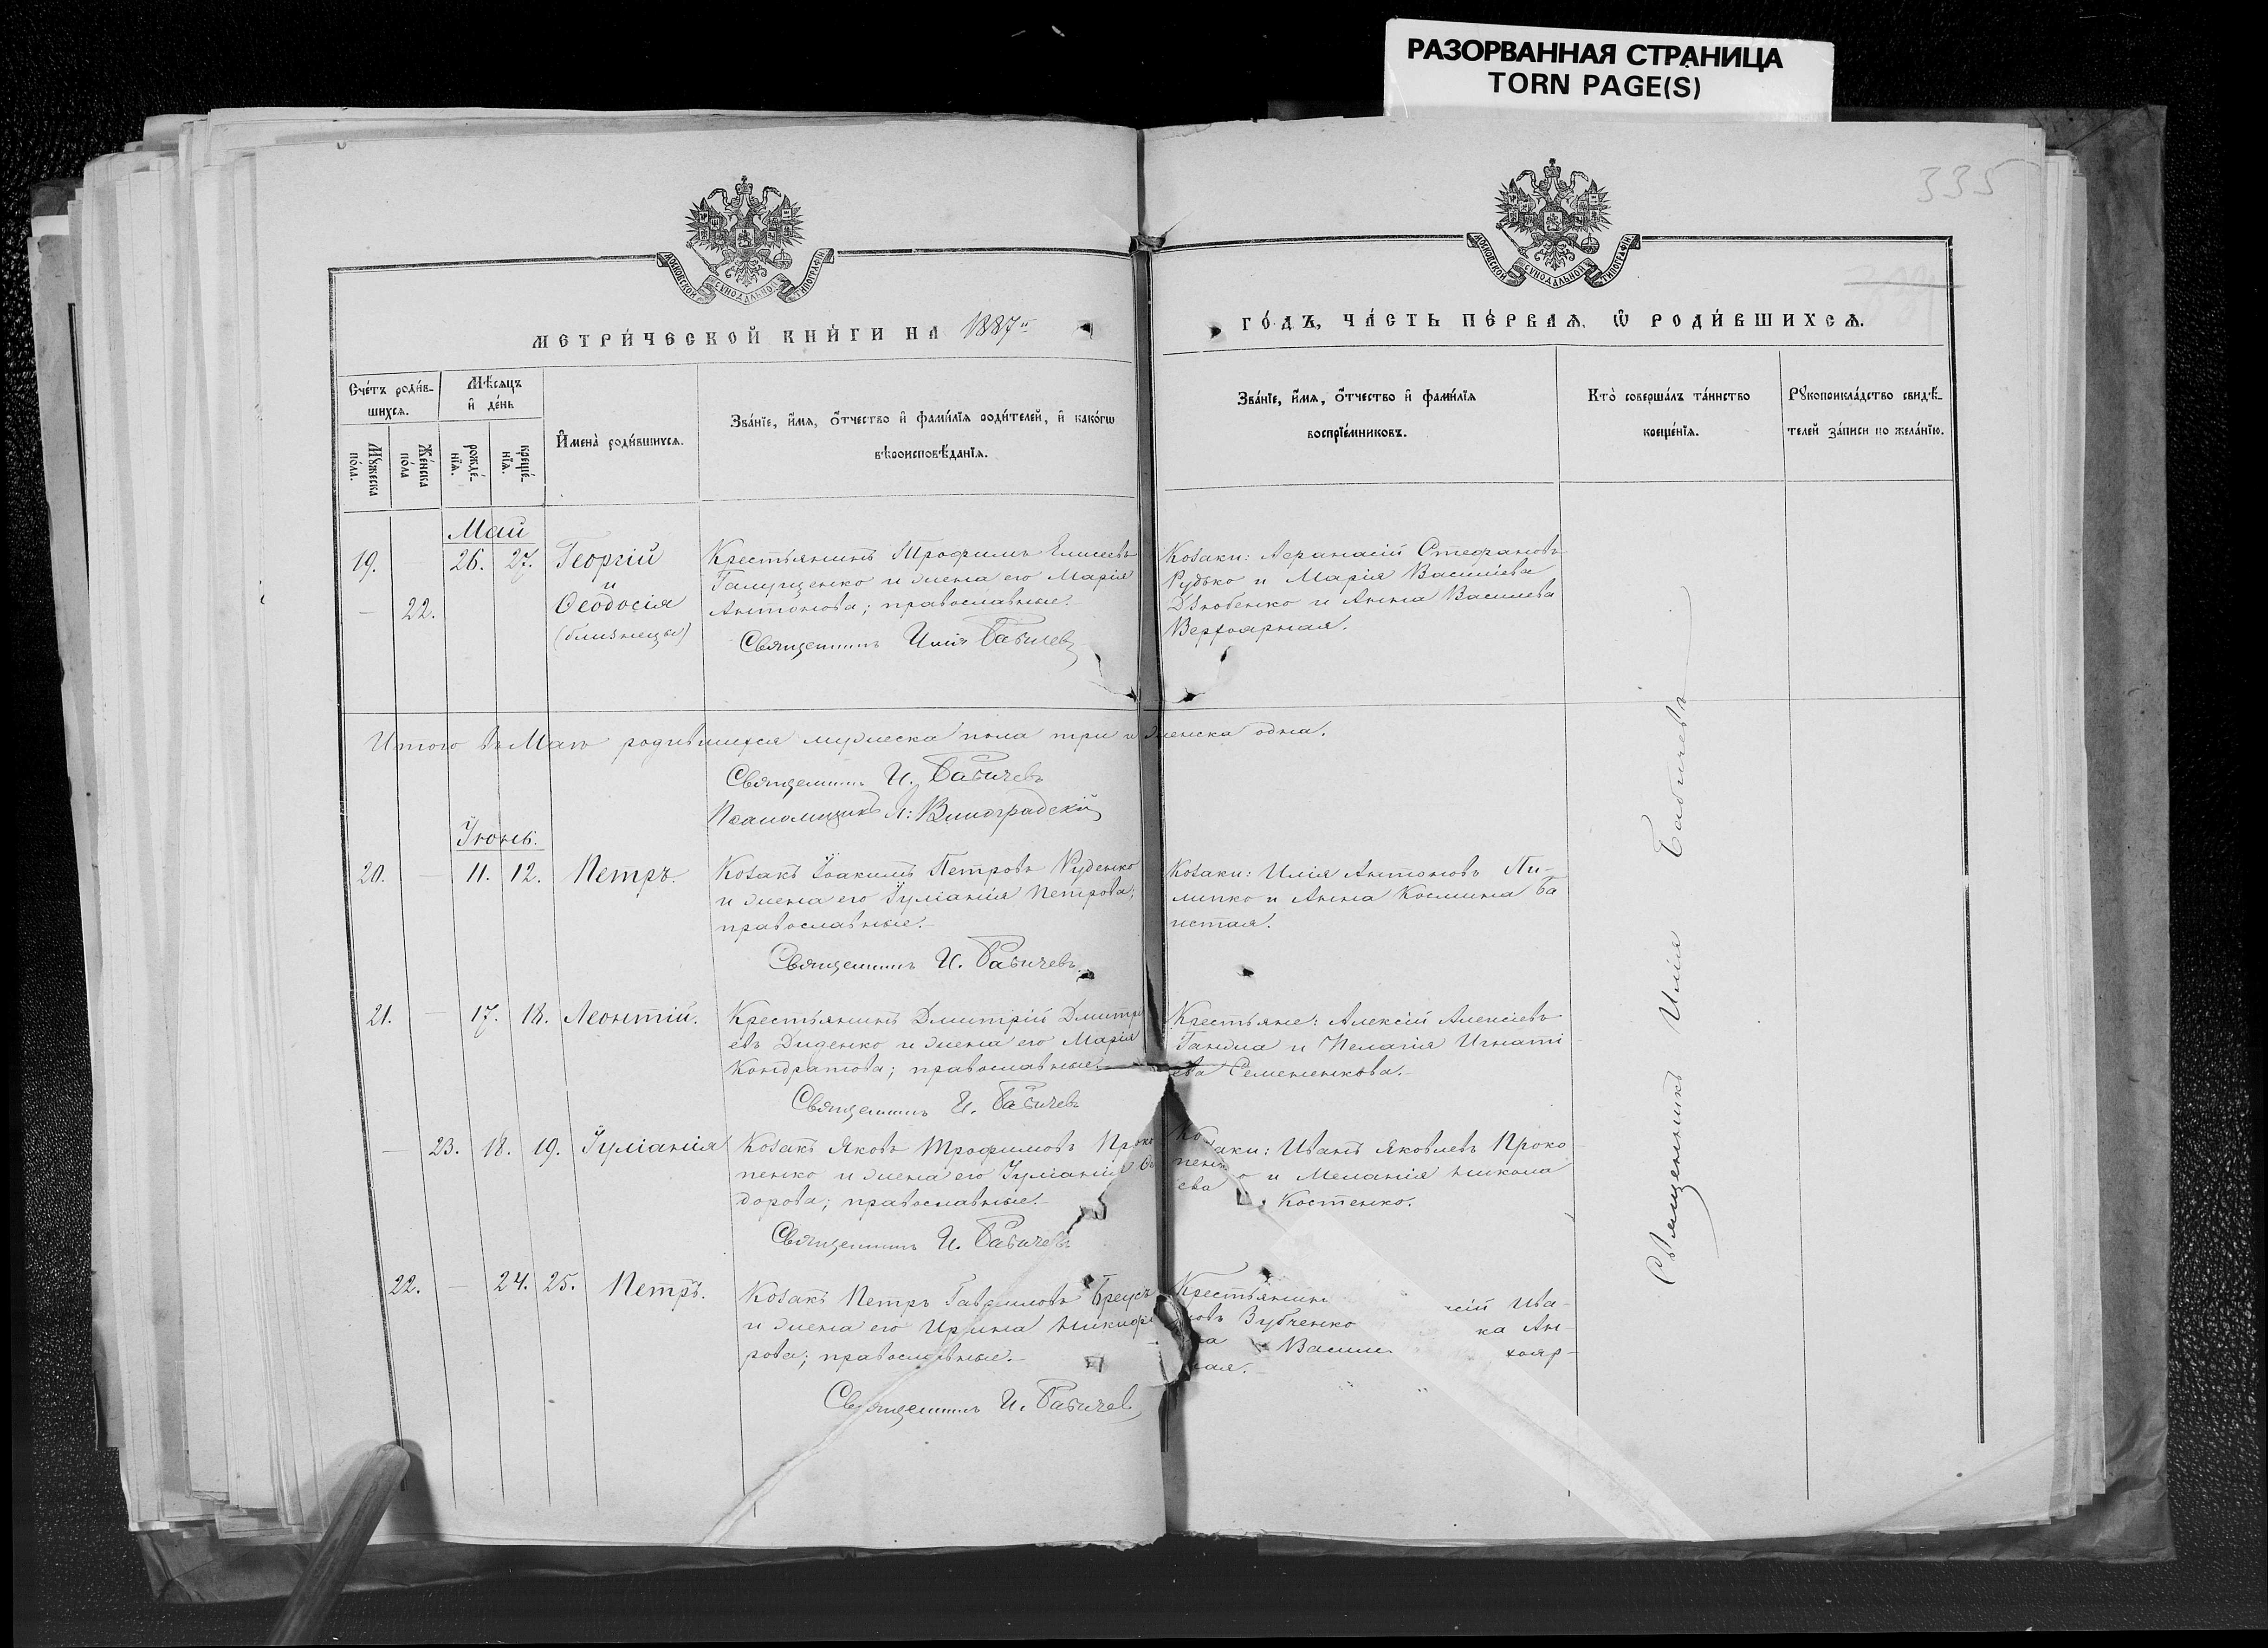 РАЗОРВАННАЯ СТРАНИЦА
TORN PAGE(S)
335
МОСКОВСКОЙ СУНОДАЛЬНОЙ ТИПОГРАФІИ
МОСКОВСКОЙ СУНОДАЛЬНОЙ ТИПОГРАФІИ
МЕТРИ́ЧЕСКОЙ КНИ́ГИ НА 1887й
ГО́ДЪ, ЧА́СТЬ ПЕ́РВАЯ, Ѡ РОДИ́ВШИХСЯ.
Сче́тъ роди́в-
шихся.
Мѣсяцъ
и де́нь
Му́жеска
по́ла.
Же́нска
по́ла
рожде́-
нїя.
креще́-
нїя.
Имена̀ роди́вшихся.
Зва́нїе, и́мя, о́тчество и фами́лїя роди́телей, и како́гѡ
вѣроисповѣ́данїя.
Зва́нїе, и́мя, о́тчество и фами́лїя
воспрїе́мниковъ.
Кто̀ соверша́лъ та́инство
креще́нїя.
Рукоприкла́дство свидѣ́-
телей за́писи по жела́нїю.
Май
19. — 26. 27. Георгій
и
— 22. Ѳеодосія
(близнецы)
Крестьянинъ Трофимъ Елисеевъ
Галущенко и жена его Марія
Антонова; православные.
Священникъ Илія Бабичевъ
Козаки: Аѳанасій Стефановъ
Рудько и Марія Василіева
Дзюбенко и Анна Василева
Верхоярная.
Итого въ Маѣ родившихся мужеска пола три и женска одна.
Священникъ И. Бабичевъ
Псаломщикъ Л: Виноградскій
Іюнь.
20. — 11. 12. Петръ.
Козакъ Іоакимъ Петровъ Руденко
и жена его Іуліанія Петрова;
православные.
Священникъ И. Бабичевъ.
Козаки: Илія Антоновъ Пи-
липко и Анна Космина Ба
истая.
21. — 17. 18. Леонтій.
Крестьянинъ Димитрій Димитрі
евъ Диденко и жена его Марія
Кондратова; православные.
Священникъ И. Бабичевъ
Крестьяне: Алексій Алексіевъ
Ганжа и Пелагія Игнаті
ева Семененкова.
— 23. 18. 19. Іуліанія
Козакъ Яковъ Трофимовъ Проко
пенко и жена его Іуліанія Ѳе
дорова; православные.
Священникъ И. Бабичевъ
Козаки: Иванъ Яковлевъ Проко
пенко и Меланія Никола
ева Костенко.
22. — 24. 25. Петръ.
Козакъ Петръ Гавриловъ Бреусъ
и жена его Ирина Никифо
рова; православные.
Священникъ И. Бабичевъ
Крестьянинъ сій Ива-
новъ Зубченко ка Ан-
на Васили хояр-
ная.
Священникъ Илія Бабичевъ